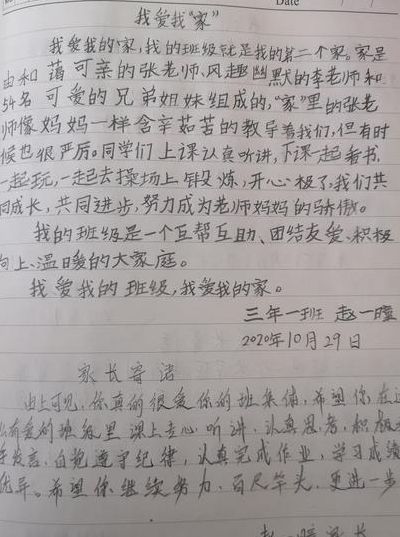 Date
我爱我“家”
我爱我的“家，我的班级就是我的第二个家。家是
由和蔼可亲的张老师、风趣幽默的李老师和
54名可爱的兄弟姐妹组成的，“家”里的张老
师像妈妈一样含辛茹苦的教导着我们，但有时
候也很严厉。同学们上课认真听讲，下课一起看书，
一起玩，一起去操场上锻炼，开心极了，我们共
同成长，共同进步，努力成为老师妈妈的骄傲。
我的班级是一个互帮互助、团结友爱、积极
向上、温暖的大家庭。
我爱我的班级，我爱我的家。
三年一班 赵一瞳
2020年10月29日
家长寄语
由上可见，你真的很爱你的班集体，希望你在这
有爱的班级里课上专心听讲，认真思考，积极
发言，自觉遵守纪律，认真完成作业，学习成绩
优异。希望你继续努力，百尺竿头，更进一步
家长